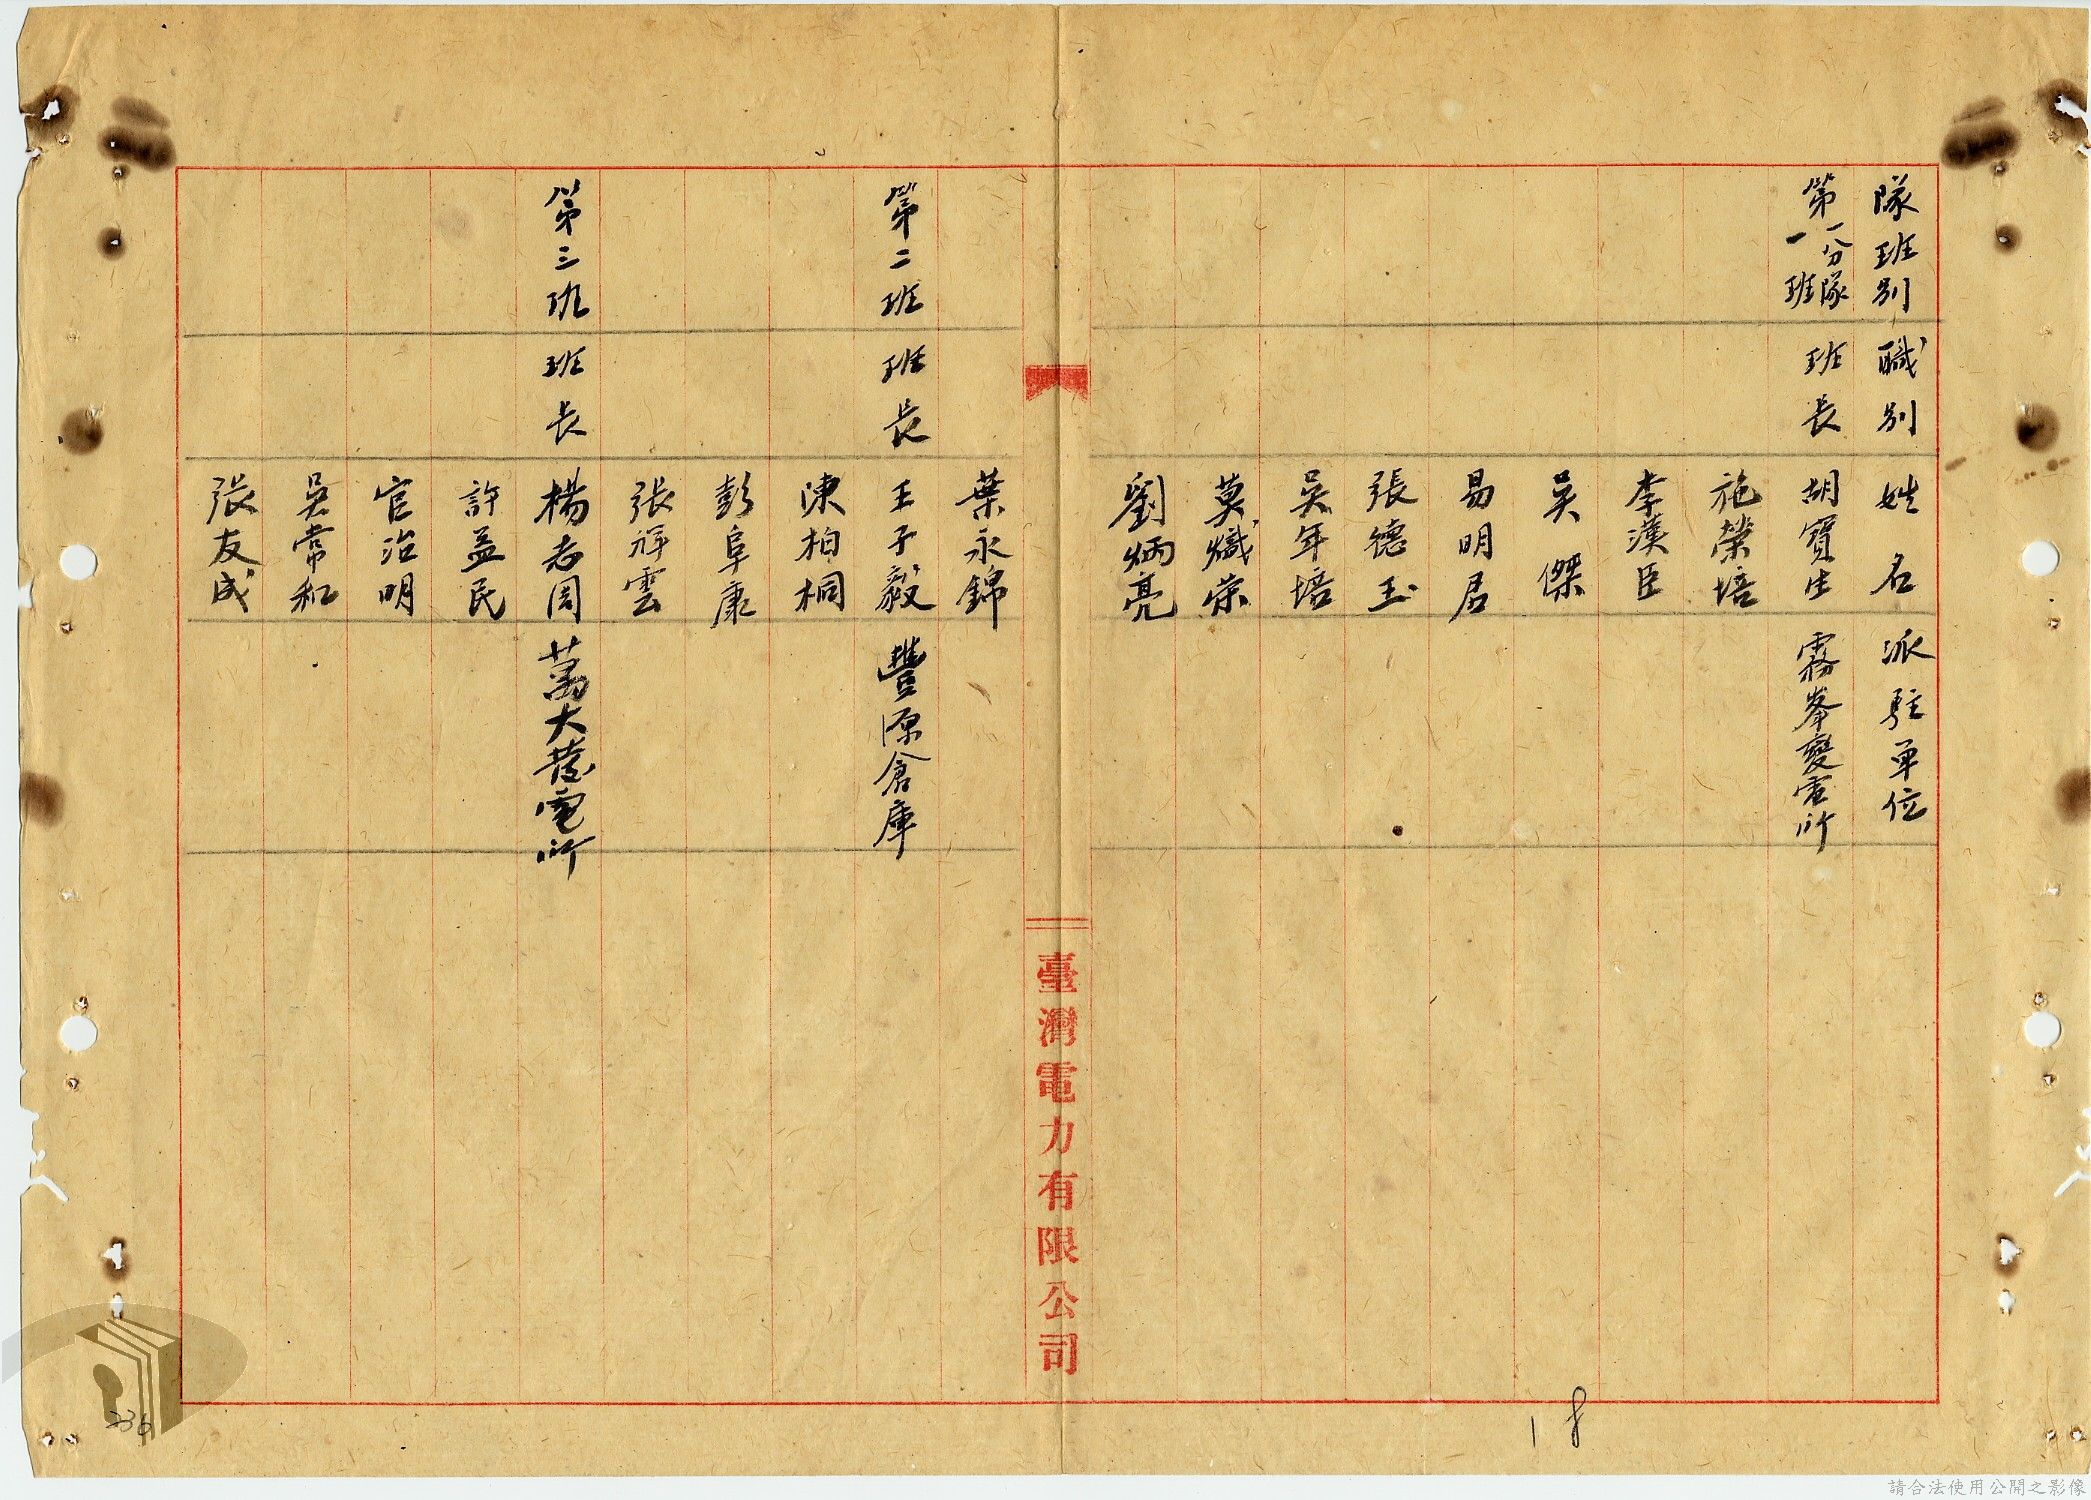 隊班別 職別 姓名 派駐單位
第一分隊
第一班 班長 胡寶生 霧峯變電所
施榮培
李漢臣
吳傑
易明居
張德玉
吳年培
莫熾榮
劉炳亮
臺灣電力有限公司
葉永錦
第二班 班長 王子毅 豐源倉庫
陳柏桐
彭阜康
張祥雲
第三班 班長 楊志周 萬大發電所
許益民
官治明
吳常和
張友成
18
236
請合法使用公開之影像